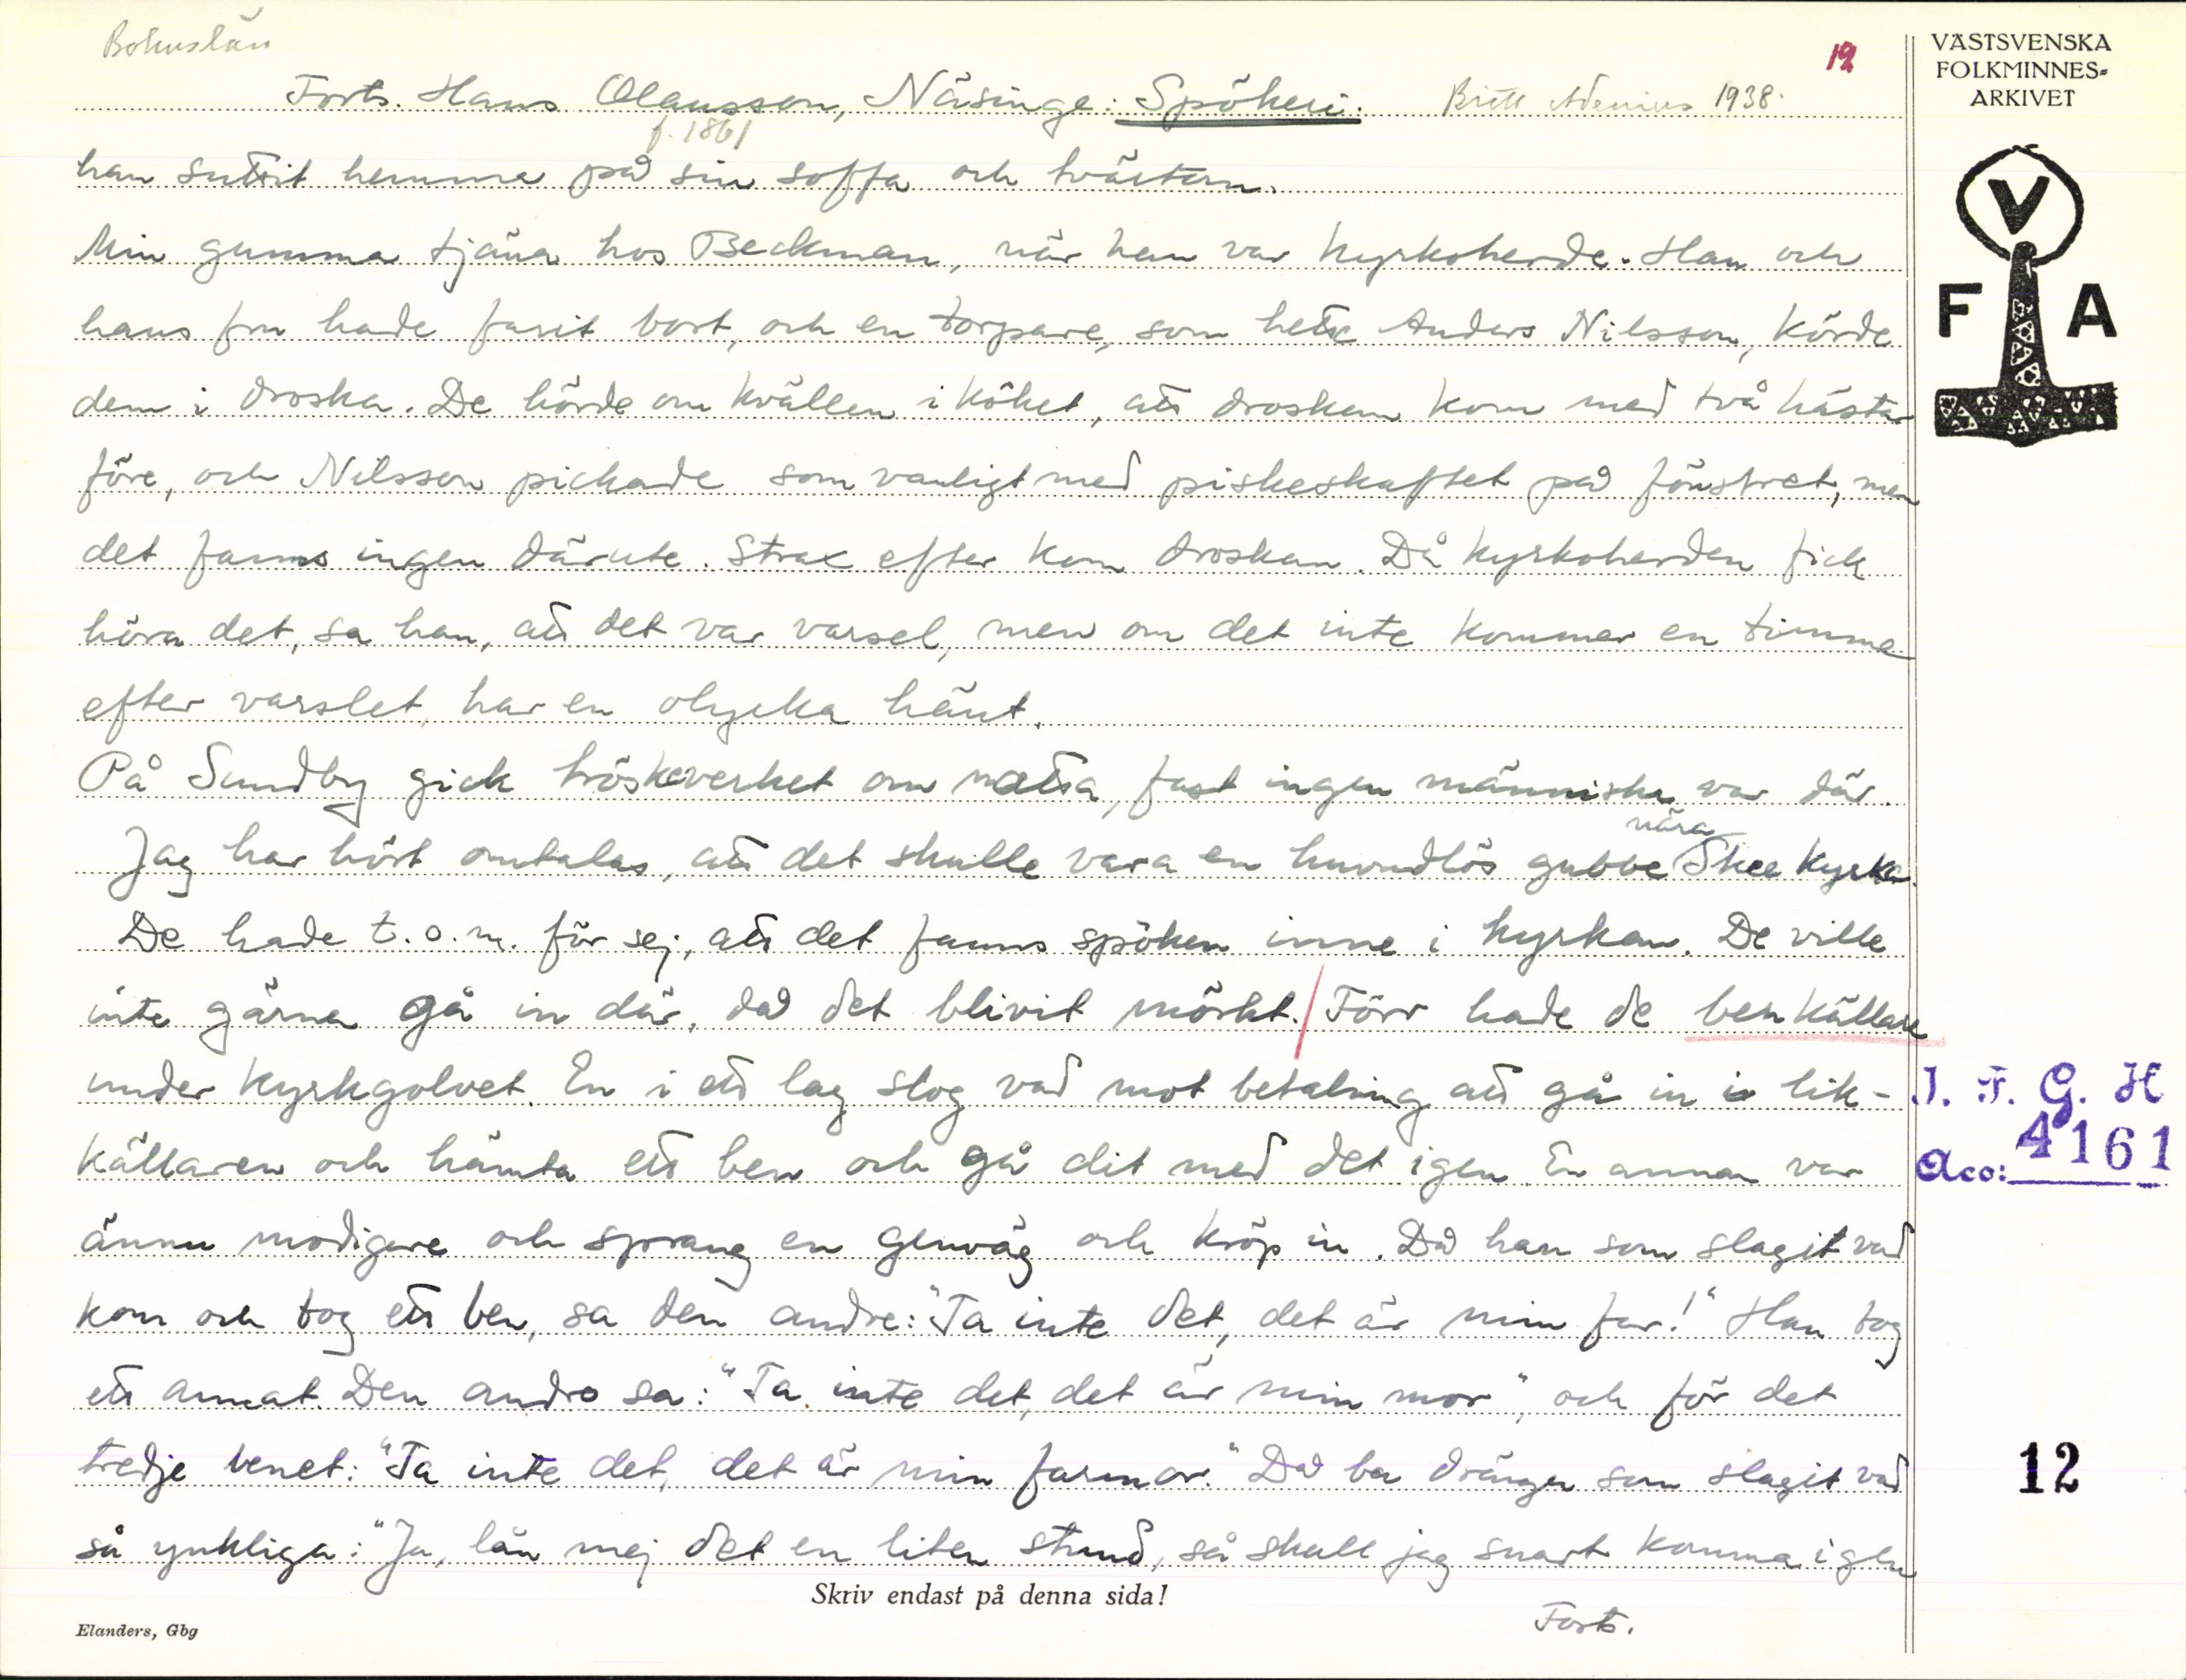 Bohuslän
12
Forts. Hans Olausson, Näsinge: Spökeri. Britt Adenius 1938.
f. 1861
han suttit hemma på sin soffa och tvärtom.
Min gumma tjäna hos Beckman, när han var kyrkoherde. Han och
hans fru hade farit bort, och en torpare, som hette Anders Nilsson, körde
dem i droska. De hörde om kvällen i köket, att droskan kom med två hästar
före, och Nilsson pickade som vanligt med piskeskaftet på fönstret, men
det fanns ingen därute. Strax efter kom droskan. Då kyrkoherden fick
höra det, sa han, att det var varsel, men om det inte kommer en timma
efter varslet, har en olycka hänt.
På Sundby gick tröskeverket om natta, fast ingen människa var där.
nära
Jag har hört omtalas, att det skulle vara en huvudlös gubbe Skee kyrka.
De hade t.o.m. för sej, att det fanns spöken inne i kyrkan. De ville
inte gärna gå in där, då det blivit mörkt./ Förr hade de benkällare
under kyrkgolvet. En i ett lag slog vad mot betalning att gå in i lik-
källaren och hämta ett ben och gå dit med det igen. En annan var
ännu modigare och sprang en genväg och kröp in. Då han som slagit vad
kom och tog ett ben, sa den andre: "Ta inte det, det är min far!" Han tog
ett annat. Den andre sa: "Ta inte det, det är min mor", och för det
tredje benet: "Ta inte det, det är min farmor." Då ba drängen som slagit vad
så ynkliga: "Ja, lån mej det en liten stund, så skall jag snart komma igen
Forts.
Skriv endast på denna sida!
Elanders, Gbg
VÄSTSVENSKA
FOLKMINNES-
ARKIVET
V
F A
I. F. G. H
Acc: 4161
12